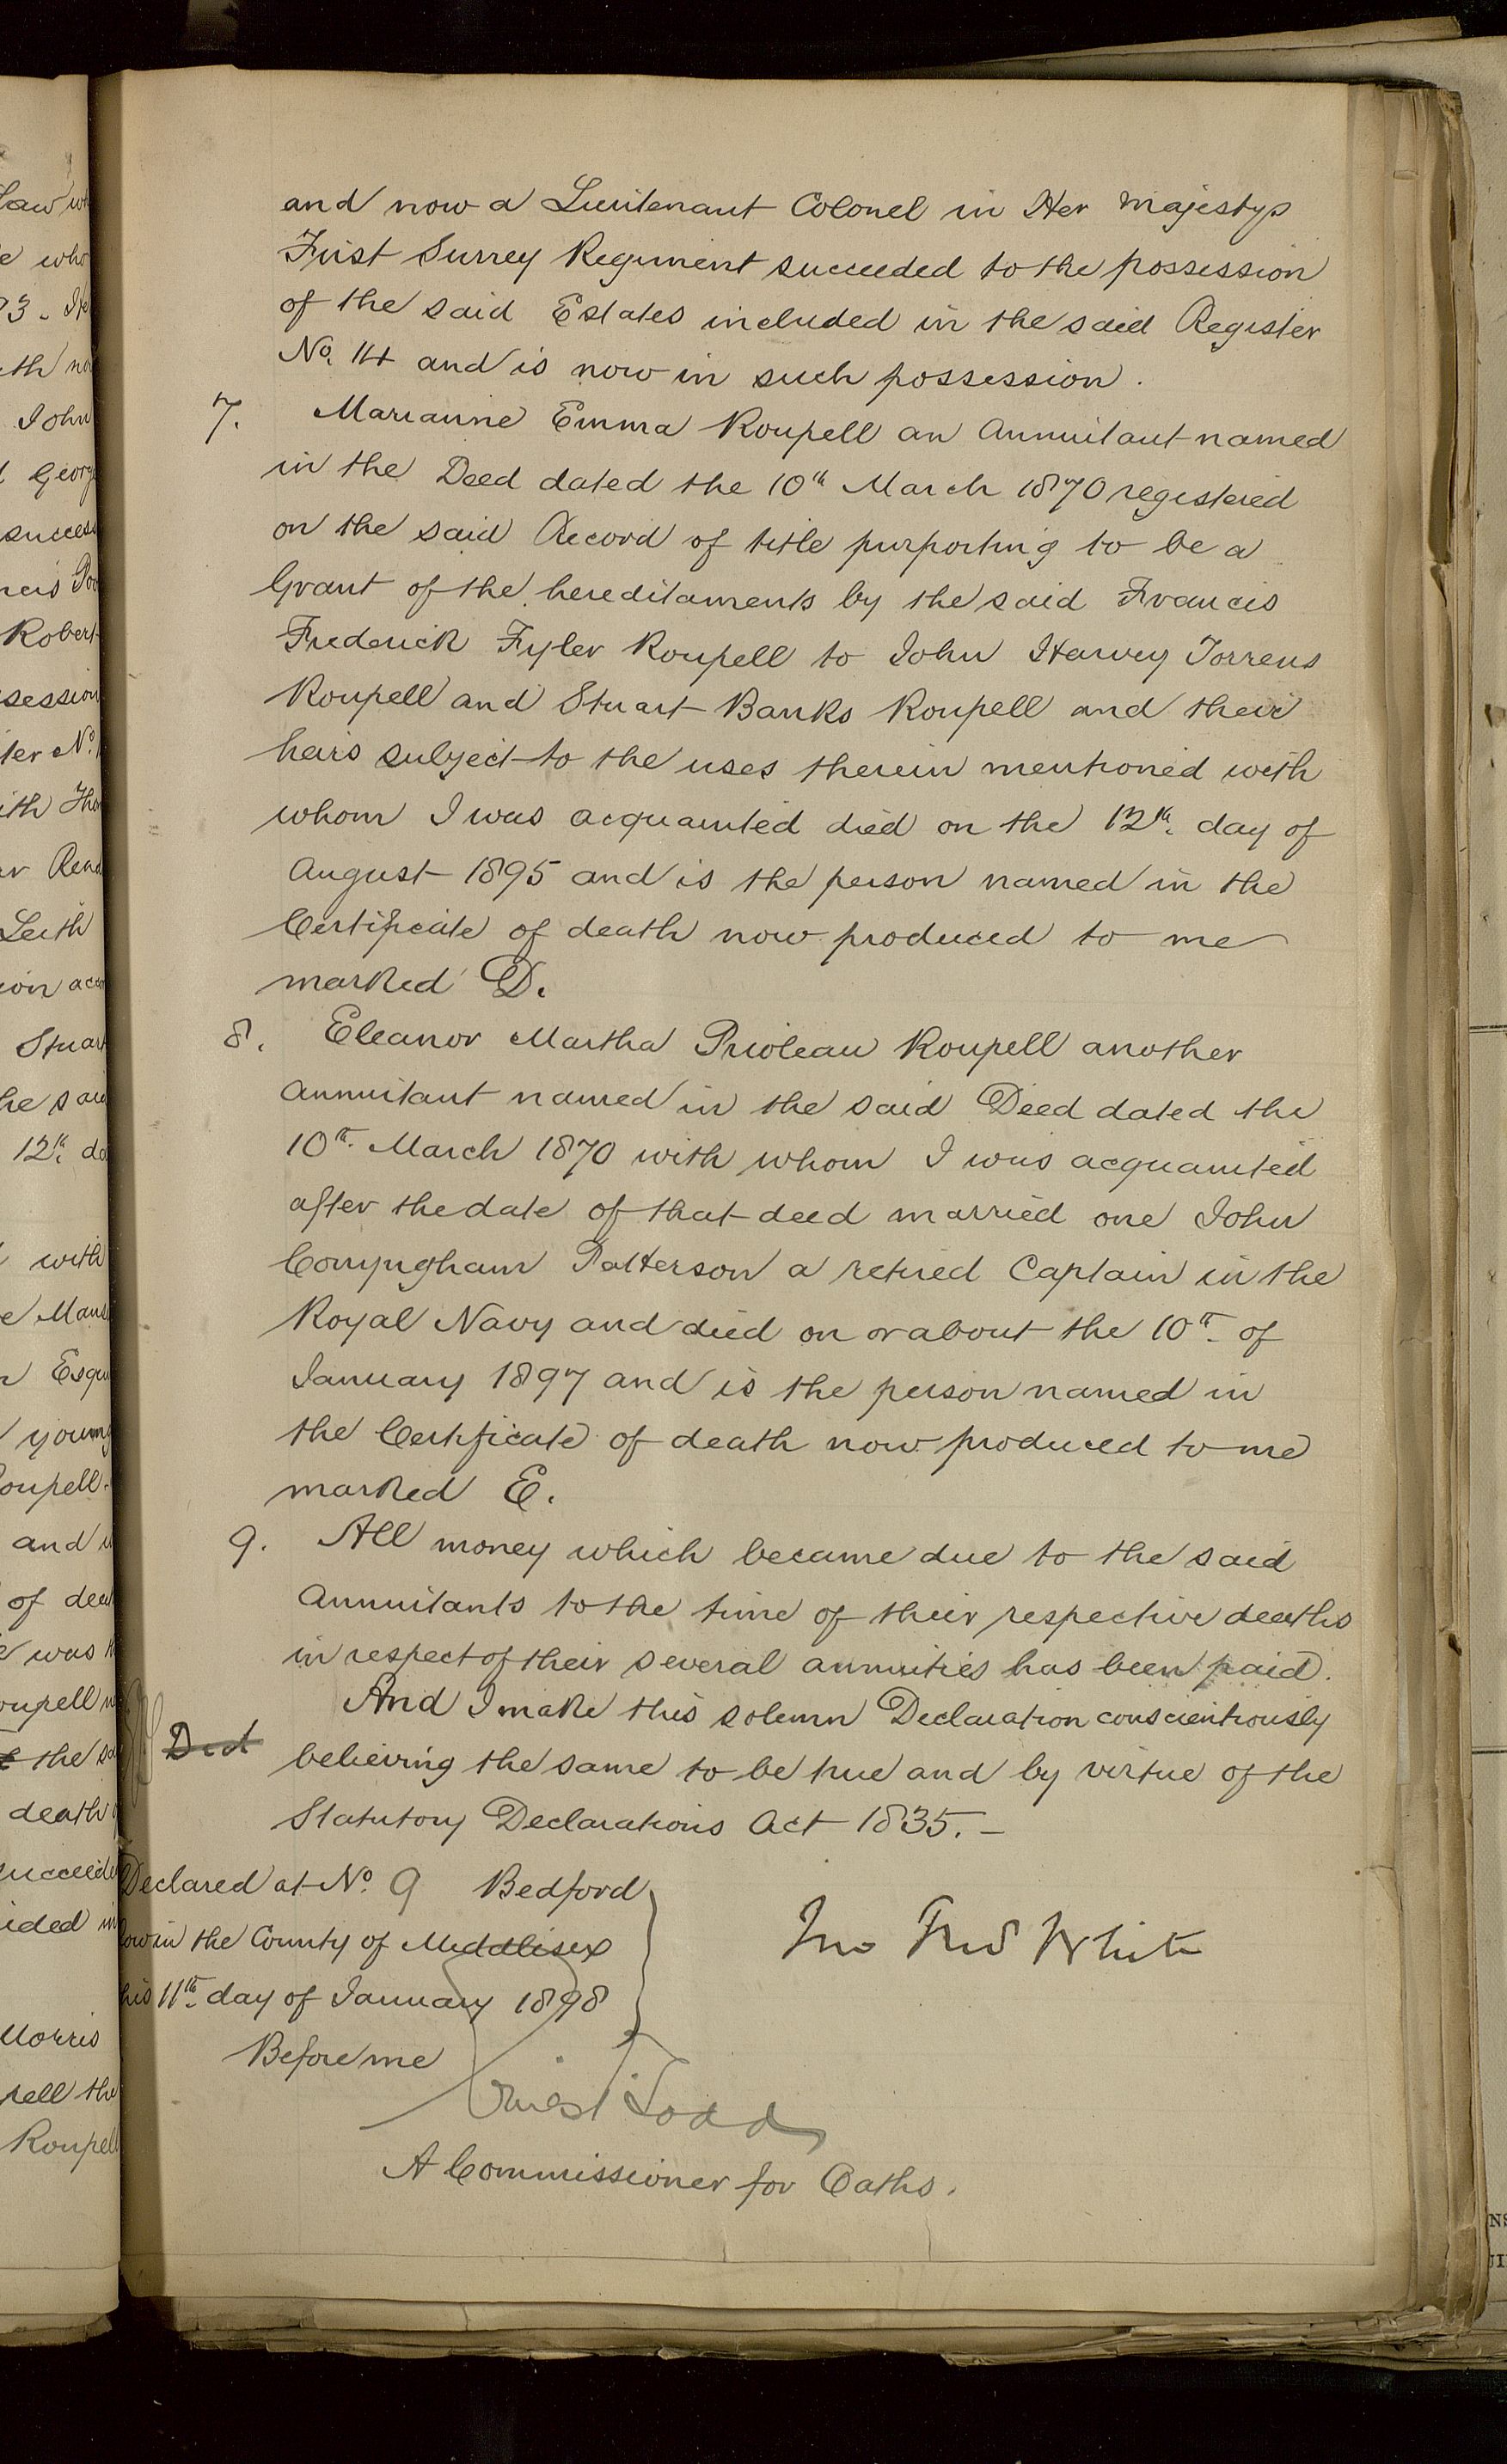 and now a Lieutenant Colonel in Her Majestys
First Surrey Regiment succeeded to the possession
of the said Estates included in the said Register
No. 14 and is now in such possession.
7. Marianne Emma Roupell an Annuitant named
in the Deed dated the 10th March 1870 registered
on the said Record of title purporting to be a
Grant of the hereditaments by the said Francis
Frederick Fyler Roupell to John Harvey Torrens
Roupell and Stuart Banks Roupell and their
heirs subject to the uses therein mentioned with
whom I was acquainted died on the 12th. day of
August 1895 and is the person named in the
Certificate of death now produced to me
marked D.
8. Eleanor Martha Prioleau Roupell another
Annuitant named in the said Deed dated the
10th. March 1870 with whom I was acquainted
after the date of that deed married one John
Conyngham Patterson a retired Captain in the
Royal Navy and died on or about the 10th. of
January 1897 and is the person named in
the Certificate of death now produced to me
marked E.
9. All money which became due to the said
Annuitants to the time of their respective deaths
in respect of their several annuities has been paid.
And I make this solemn Declaration conscientiously
believing the same to be true and by virtue of the
Statutory Declarations Act 1835.-
Declared at No. 9 Bedford
Row in the County of Middlesex
this 11th. day of January 1898
Before me
Jno Fred White
A Commissioner for Oaths.